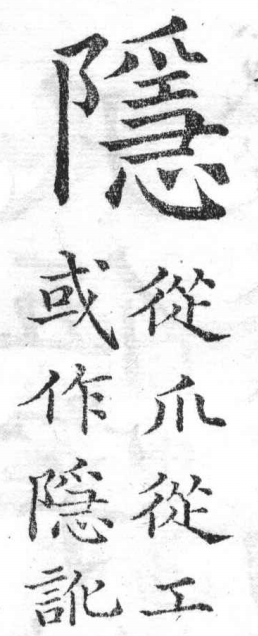 隱
從爪從工
或作隠訛